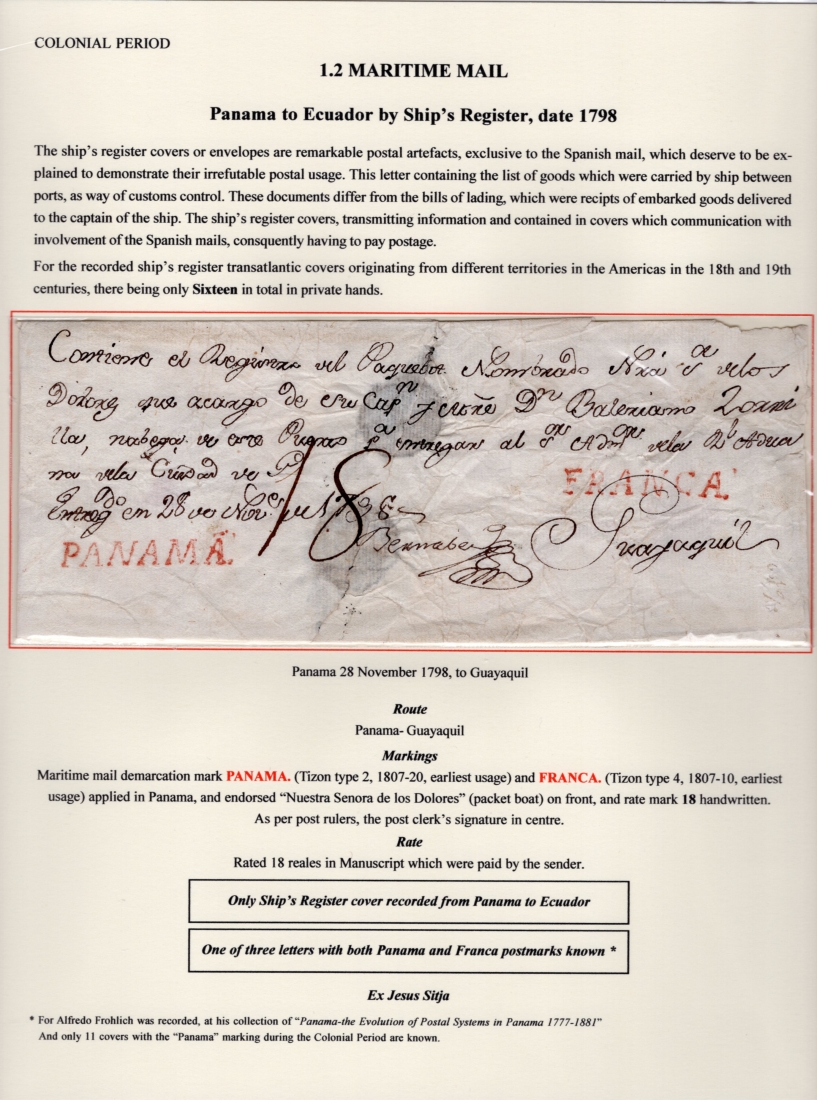 COLONIAL PERIOD
1.2 MARITIME MAIL
Panama to Ecuador by Ship's Register, date 1798
The ship's register covers or envelopes are remarkable postal artefacts, exclusive to the Spanish mail, which deserve to be ex-
plained to demonstrate their irrefutable postal usage. This letter containing the list of goods which were carried by ship between
ports, as way of customs control. These documents differ from the bills of lading, which were recipts of embarked goods delivered
to the captain of the ship. The ship's register covers, transmitting information and contained in covers which communication with
involvement of the Spanish mails, consquently having to pay postage.
For the recorded ship's register transatlantic covers originating from different territories in the Americas in the 18th and 19th
centuries, there being only Sixteen in total in private hands.
Contiene el Registro del Paquebot Nombrado Ntrã Sª de los
Dolores que acargo de su Capn y Mtre Dn Baleriano Zorri
lla, nabega de este Puerto pª entregar al Sor Admor de la Rl Adua
na de la Ciudad de
Entregdo en 28 de Nove de 1798
18
FRANCA.
PANAMA.
Bernabe
Guayaquil
Panama 28 November 1798, to Guayaquil
Route
Panama- Guayaquil
Markings
Maritime mail demarcation mark PANAMA. (Tizon type 2, 1807-20, earliest usage) and FRANCA. (Tizon type 4, 1807-10, earliest
usage) applied in Panama, and endorsed “Nuestra Senora de los Dolores” (packet boat) on front, and rate mark 18 handwritten.
As per post rulers, the post clerk's signature in centre.
Rate
Rated 18 reales in Manuscript which were paid by the sender.
Only Ship's Register cover recorded from Panama to Ecuador
One of three letters with both Panama and Franca postmarks known *
Ex Jesus Sitja
* For Alfredo Frohlich was recorded, at his collection of “Panama-the Evolution of Postal Systems in Panama 1777-1881”
And only 11 covers with the “Panama” marking during the Colonial Period are known.